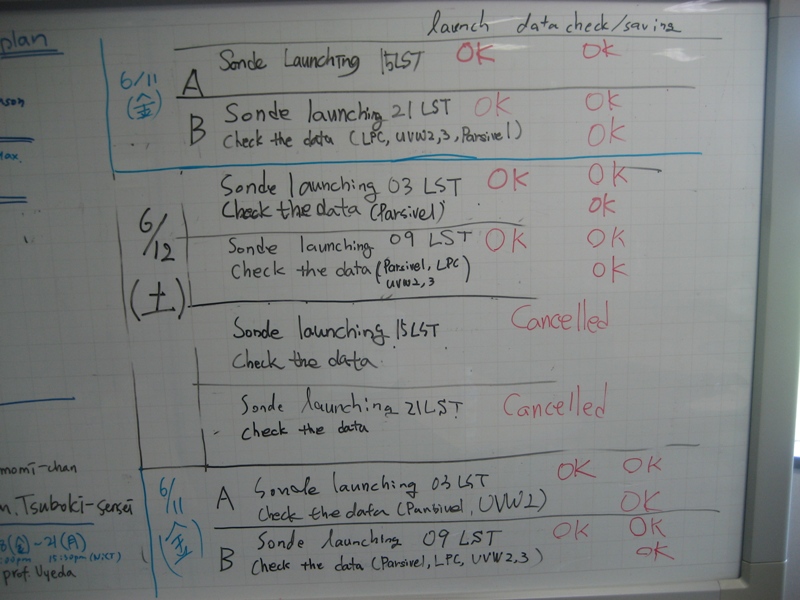 plan
launch data check/saving
6/11
(金)
A Sonde Launching 15LST OK OK
B Sonde launching 21 LST OK OK
Check the data (LPC, UVW2,3, Parsivel) OK
6/12
(土)
Sonde launching 03 LST OK OK
Check the data (Parsivel) OK
Sonde launching 09 LST OK OK
Check the data (Parsivel, LPC OK
UVW2,3)
Sonde launching 15LST Cancelled
Check the data
Sonde launching 21LST Cancelled
check the data
6/11
(金)
A Sonde launching 03 LST OK OK
Check the data (Parsivel, UVW2) OK
B Sonde launching 09 LST OK OK
Check the data (Parsivel, LPC, UVW2,3) OK
momi-chan
n. Tsuboki-sensei
8(金)-21(月)
prof. Uyeda